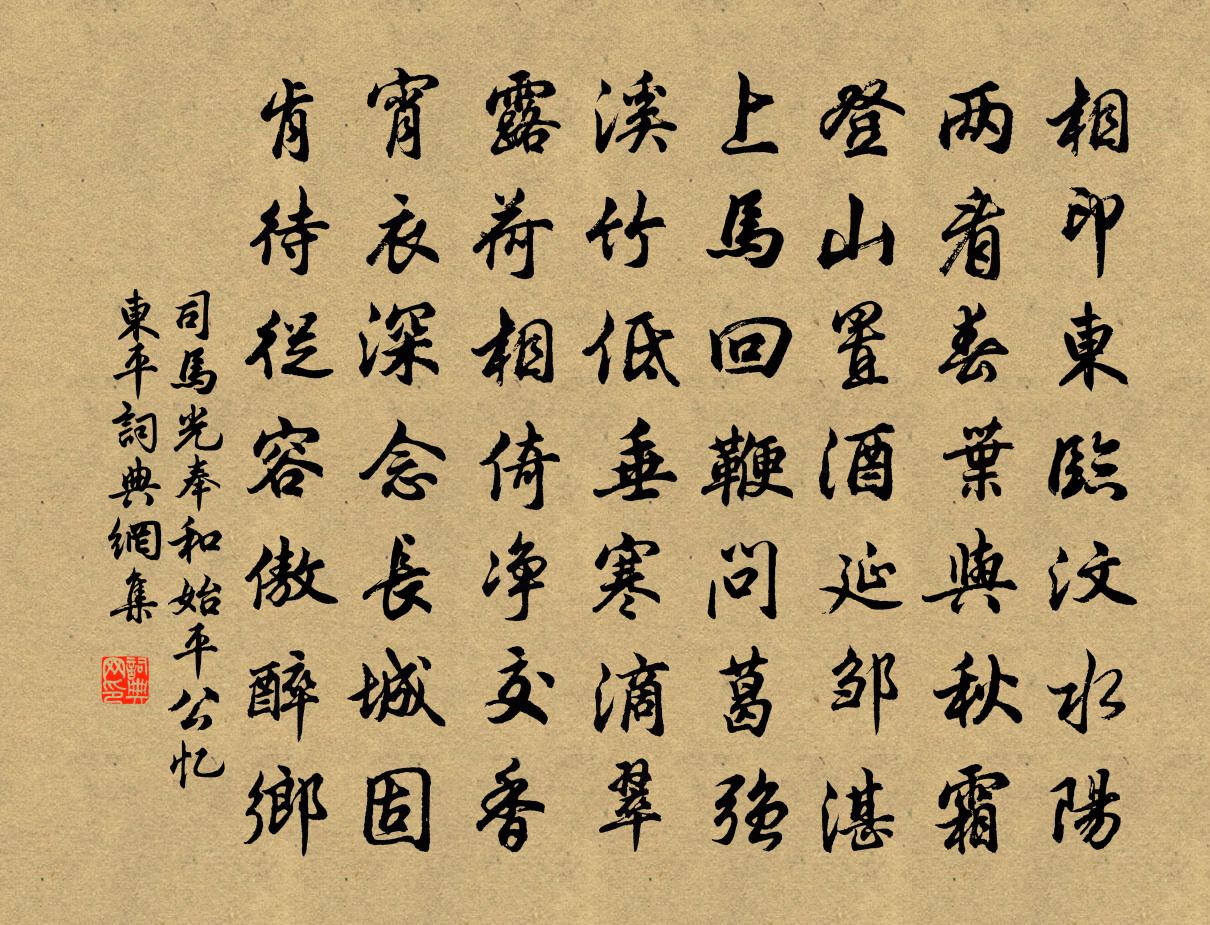 相印東臨汶水陽
两看春葉與秋霜
登山置酒延邹湛
上馬回鞭問葛強
溪竹低垂寒滴翠
露荷相倚净交香
宵衣深念長城固
肯待從容傲醉鄉
司馬光奉和始平公忆
東平詞典網集
詞典网印